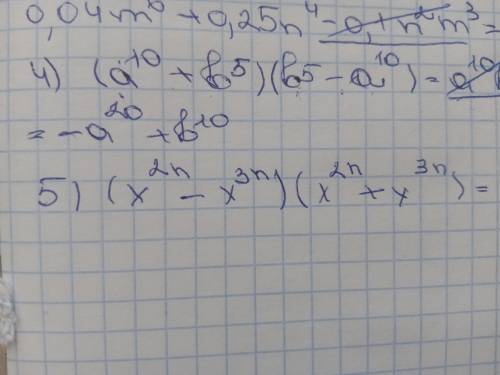 0,04m⁶ + 0,25n⁴ - 0,1n²m³ =
4) (a¹⁰ + b⁵)(b⁵ - a¹⁰) = a¹⁰
= -a²⁰ + b¹⁰
5) (x²ⁿ - x³ⁿ)(x²ⁿ + x³ⁿ) =